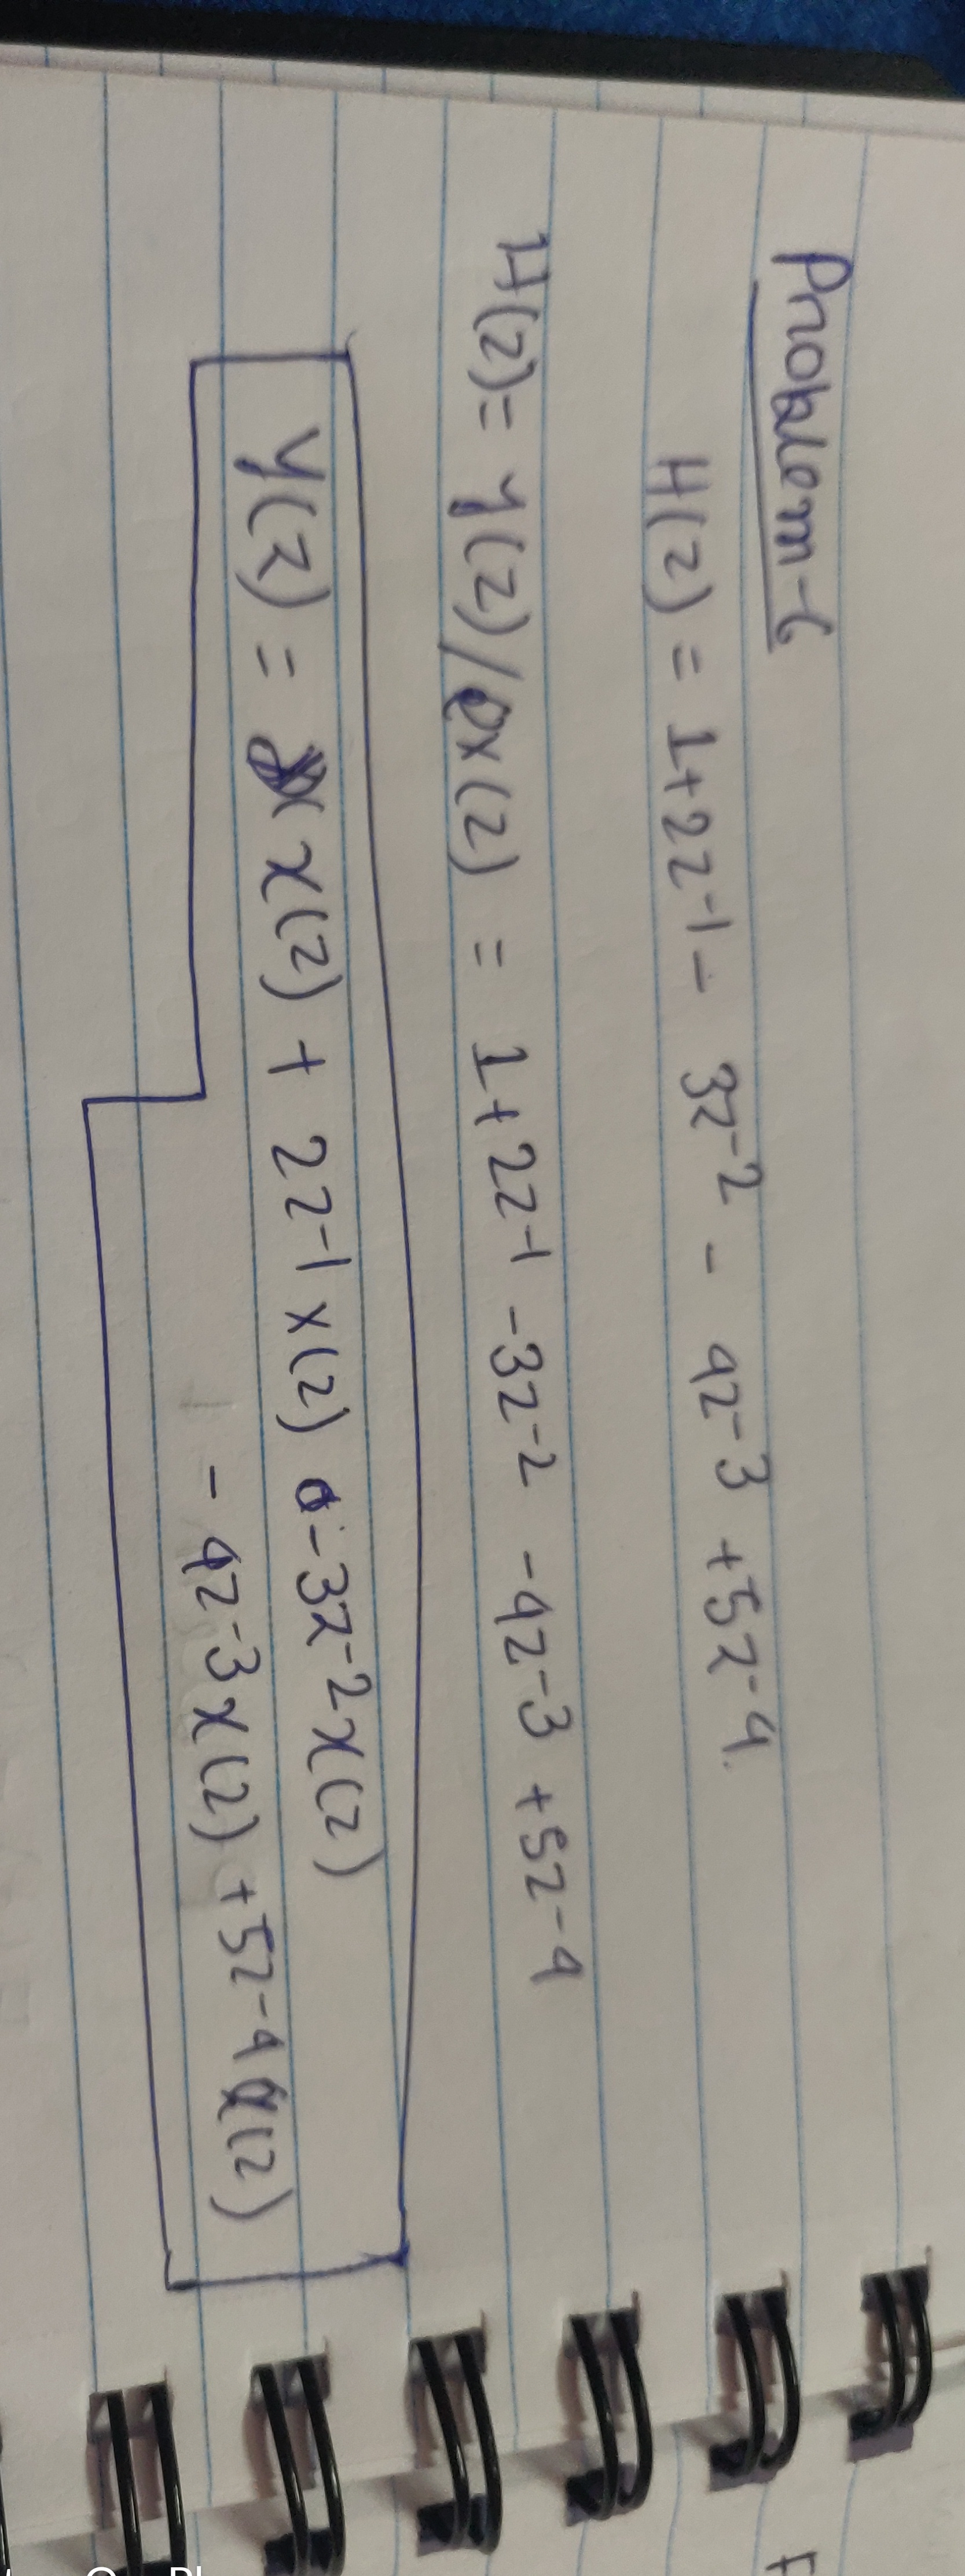 Problem-6
H(z) = 1+2z⁻¹ - 3z⁻² - 4z⁻³ +5z⁻⁴
H(z)= Y(z)/X(z) = 1+2z⁻¹ -3z⁻² -4z⁻³ +5z⁻⁴
Y(z) = X(z) + 2z⁻¹ X(z) -3z⁻² X(z)
- 4z⁻³ X(z) +5z⁻⁴ X(z)